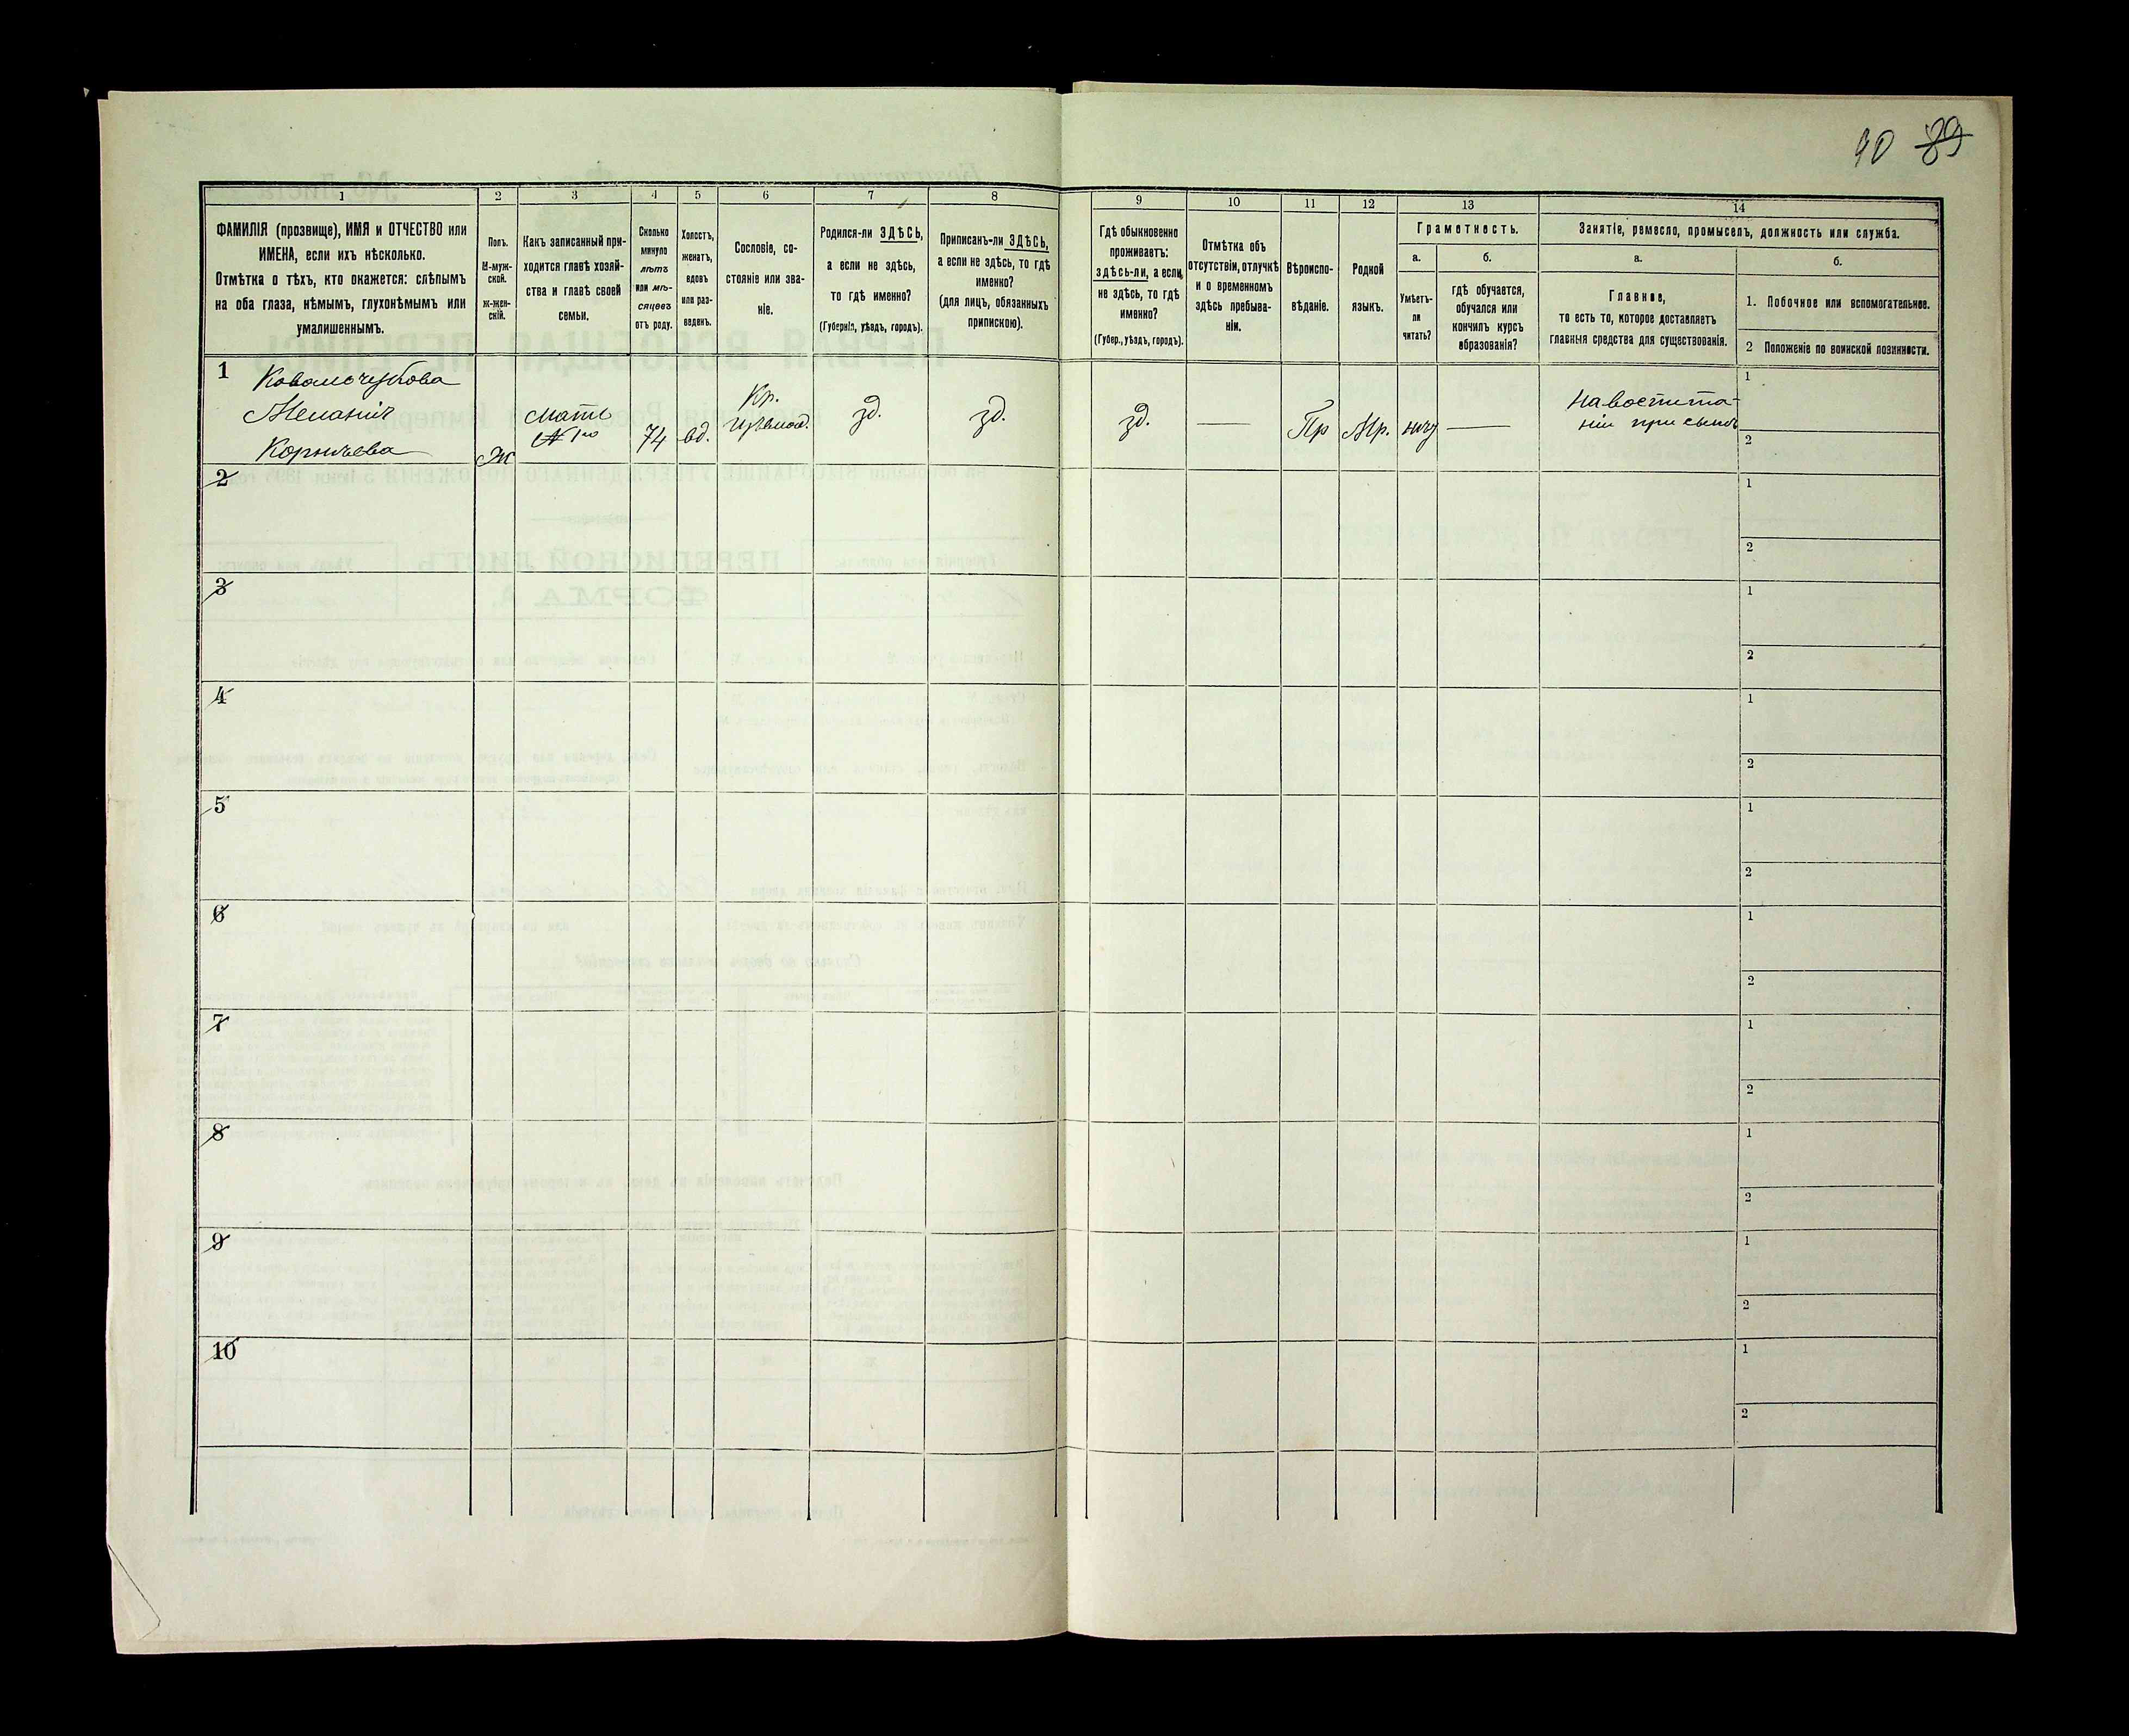 90 89
1 2 3 4 5 6 7 8 9 10 11 12 13 14
ФАМИЛІЯ (прозвище), ИМЯ и ОТЧЕСТВО или
ИМЕНА, если ихъ нѣсколько.
Отмѣтка о тѣхъ, кто окажется: слѣпымъ
на оба глаза, нѣмымъ, глухонѣмымъ или
умалишеннымъ.
Полъ.
М-муж-
ской.
Ж-жен-
скій.
Какъ записанный при-
ходится главѣ хозяй-
ства и главѣ своей
семьи.
Сколько
минуло
лѣтъ
или мѣ-
сяцевъ
отъ роду.
Холостъ,
женатъ,
вдовъ
или раз-
веденъ.
Сословіе, со-
стояніе или зва-
ніе.
Родился-ли ЗДѢСЬ,
а если не здѣсь,
то гдѣ именно?
(Губернія, уѣздъ, городъ).
Приписанъ-ли ЗДѢСЬ,
а если не здѣсь, то гдѣ
именно?
(для лицъ, обязанныхъ
припискою).
Гдѣ обыкновенно
проживаетъ:
здѣсь-ли, а если
не здѣсь, то гдѣ
именно?
(Губер., уѣздъ, городъ).
Отмѣтка объ
отсутствіи, отлучкѣ
и о временномъ
здѣсь пребыва-
ніи.
Вѣроиспо-
вѣданіе.
Родной
языкъ.
Грамотность.
а.
Умѣетъ-
ли
читать?
б.
гдѣ обучается,
обучался или
кончилъ курсъ
образованія?
Занятіе, ремесло, промыселъ, должность или служба.
а.
Главное,
то есть то, которое доставляетъ
главныя средства для существованія.
б.
1. Побочное или вспомогательное.
2 Положеніе по воинской повинности.
1
Меланія
Корнѣева
Ж
мать
№ 1го
74
вд.
Кр.
зд.
зд.
зд.
—
Пр
Мр.
—
На воспита-
ніи при сынѣ
1
2
2
1
2
3
1
2
4
1
2
5
1
2
6
1
2
7
1
2
8
1
2
9
1
2
10
1
2